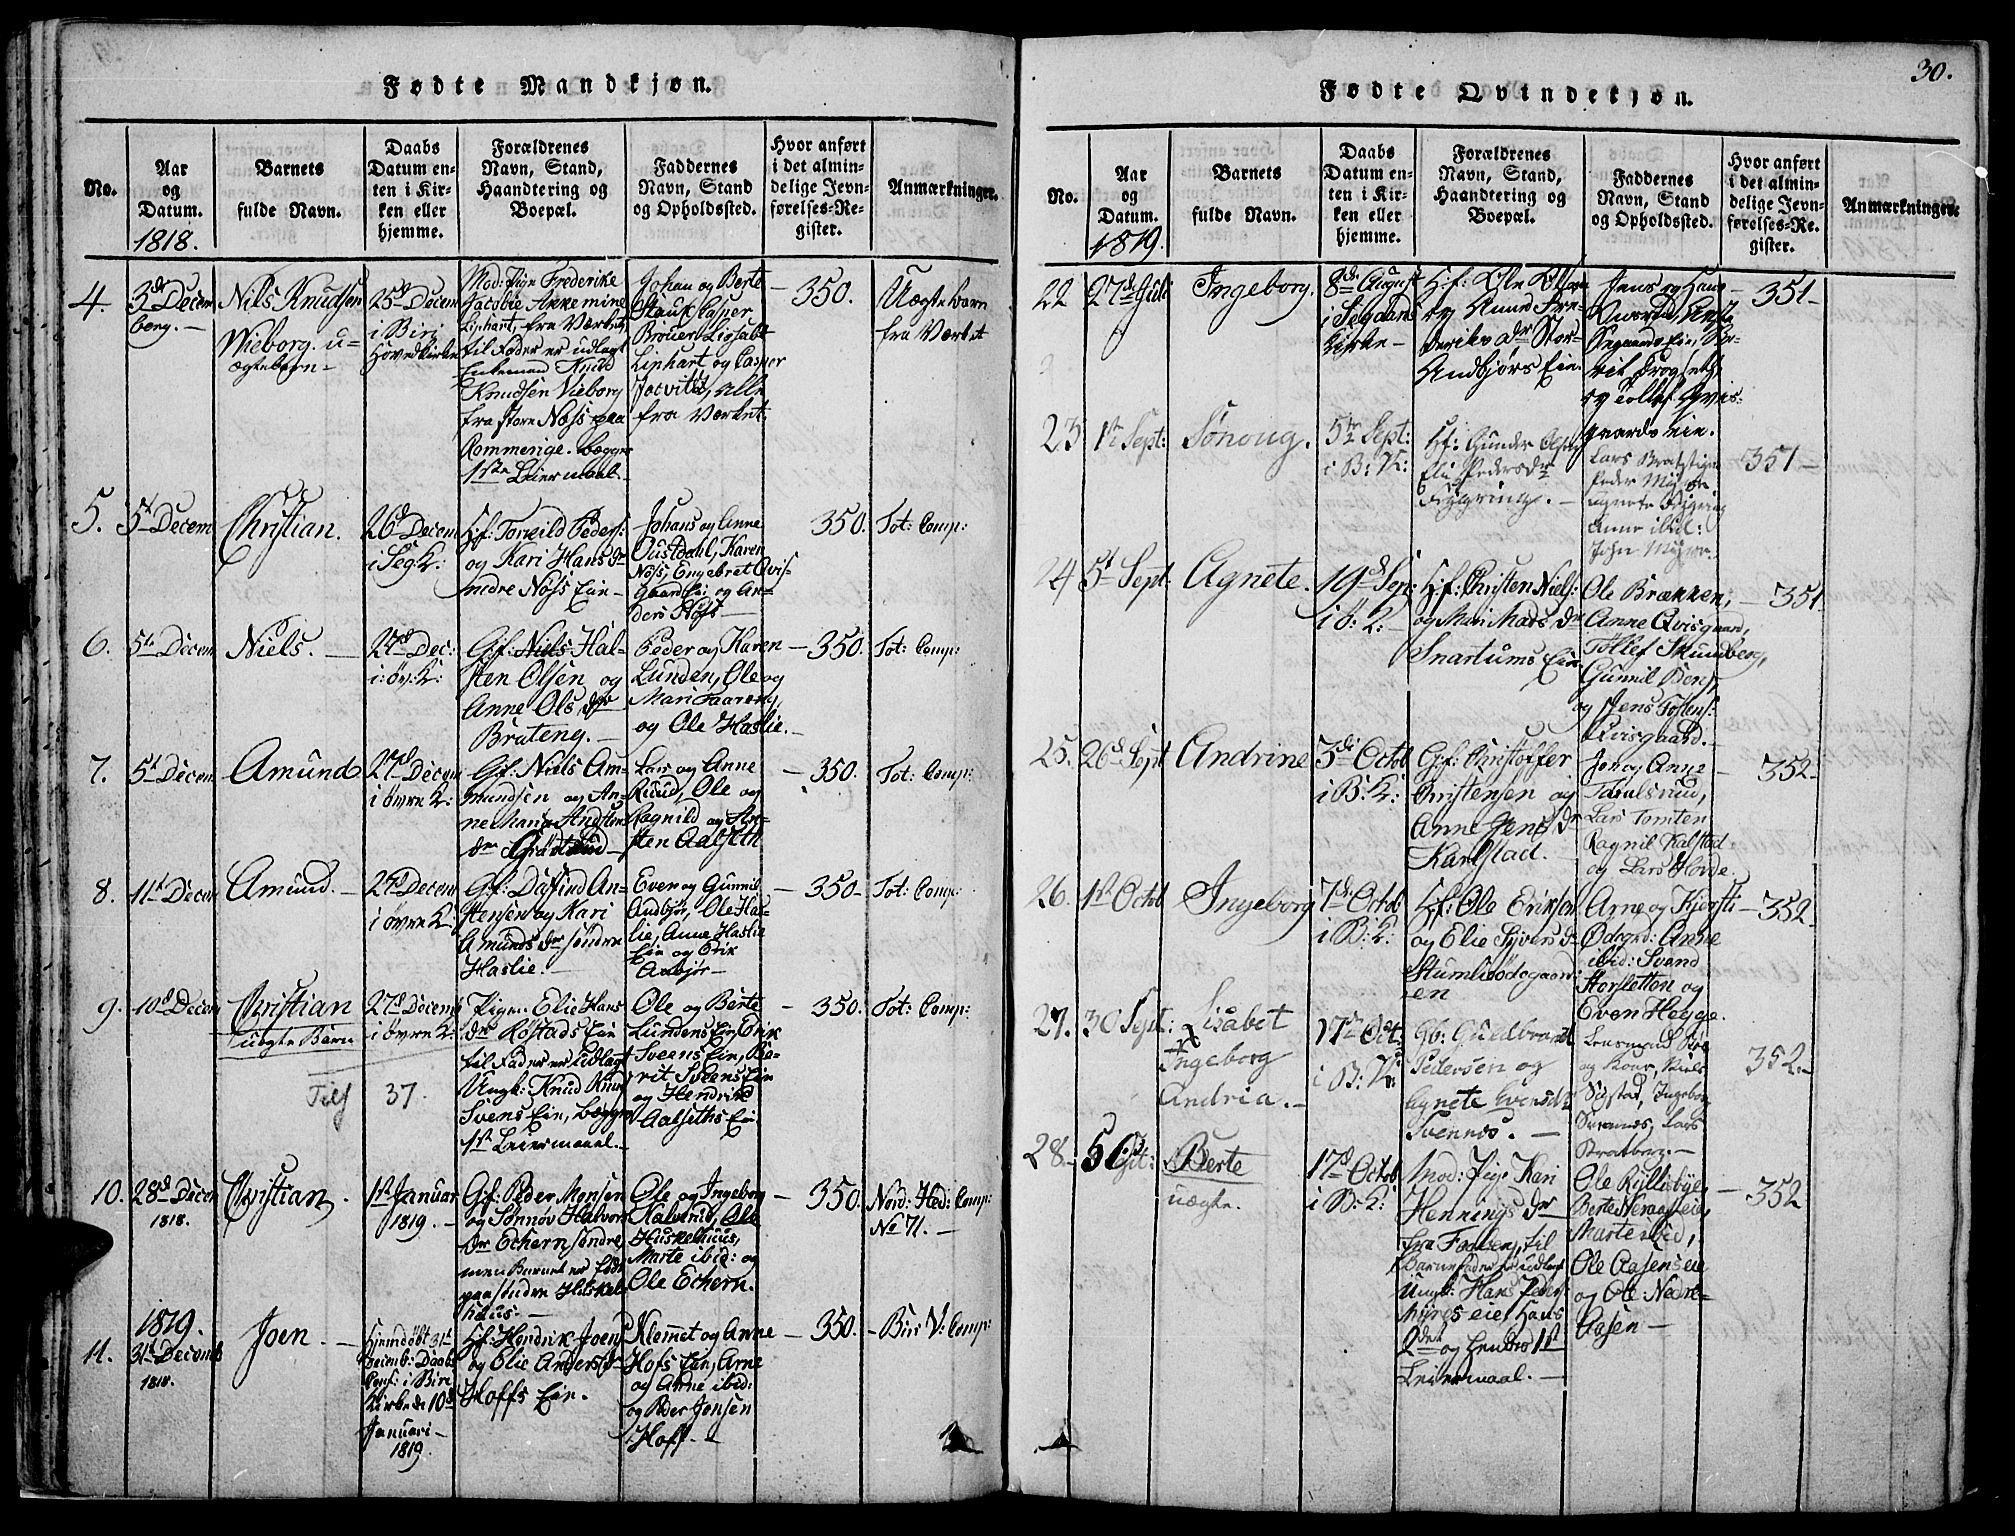 Fødte Mandkjøn.
No.
Aar
og
Datum.
1818.
Barnets
fulde Navn.
Daabs
Datum en-
ten i Kir-
ken eller
hjemme.
Forældrenes
Navn, Stand,
Haandtering og
Boepæl.
Faddernes
Navn, Stand
og Opholdssted.
Hvor anført
i det almin-
delige Jevn-
førelses-Re-
gister.
Anmærkninger.
4.
3d Decem
berg. —
Nils Knudsen
Wieborg. u-
ægtebarn —
25d Decem
i Biri
Hovedkirke
Mod: Pige Frederike
Jacobie Annemine
Liphart, fra Værket,
til Fader er udlagt
Enkemand Knud
Knudsen Vieborg
fra store Næss paa
Rommerige. begges
1ste Leiermaal.
Johan og Berte
Stauf, Casper
Brouer, Lisabet
Liphart og Casper
alle
fra Værket.
350.
Uægte barn
fra Værket
5.
5t Decem
Christian.
26d Decem
i Seg: K:
Hf: Torkild Peders:
og Kari Hans dr
nedre Næss Eie —
Johans og Anne
Oustdahl, Karen
Næss, Engebret Qvis-
gaard Eie og An-
ders Næss —
350.
Tot: Comp:
6.
5t Decem
Niels. —
27d Dec:
i: øv: K:
Gf: Niels Hal-
sten Olsen og
Anne Ols dr
Brateng. —
Peder og Karen
Lunden, Ole og
Mari Faareng,
og Ole Haslie. —
350.
Tot: Comp:
7.
5t Decem
Amund
27d Decem
i øvre K:
Gf: Niels Am-
mundsen og An-
ne Maria Andsten
dr
Lars og Anne
Ruud, Ole og
Ragnild og An-
sten Aalseth
350.
Tot: Comp:
8.
11t Decem
Amund. —
27d Decem
i øvre K:
Gf: Dafind An-
stensen og Kari
Amunds dr søndre
Haslie. —
Even og Gunnil
Andbjør, Ole Has-
lie, Anne Haslie
Eie og Erik
Anbjør —
350 —
Tot: Comp:
9.
10d Decem
Christian
uægte Barn
27d Decemb
i øvre K:
Pigen Elie Hans
dr Røstads Eie
til Fader er udlagt
Ungk: Knud Knud
Svens Eie, begges
1st Leiermaal. —
Ole og Berte
Lundens Eie, Erik
Sveens Eie, Be-
rit Sveens Eie
og Hendrik
Aalseths Eie.
350.
Tot: Comp:
Tilf 37.
10.
28d Decem
1818.
Christian.
1st Januar
1819. —
Gf: Peder Monsen
og Sønnøv Halvors
dr Echern søndre
men Barnet er født
paa søndre Huskel-
huus. —
Ole og Ingeborg
Kalverud, Ole
Huskelhuus,
Marte ibid: og
Ole Echern.
350.
Nord: Hed: Comp:
No 71. —
1819.
11.
31t Decemb
1818.
Joen. —
Hjemdøbt 31t
Decemb: Daabs
Conf: i Biri
Kirke d: 10d
Januari —
1819.
Hf: Hendrik Joens
og Elie Anders dr
Hoffs Eie.
Klemet og Anne
Hofs Eie, Arne
og Anne ibid:
og Peder Jonsen
Hoff. —
350.
Biri V: Comp:
30.
Fødte Qvindekjøn.
No.
Aar
og
Datum.
1819.
Barnets
fulde Navn.
Daabs
Datum en-
ten i Kir-
ken eller
hjemme.
Forældrenes
Navn, Stand,
Haandtering og
Boepæl.
Faddernes
Navn, Stand
og Opholdssted.
Hvor anført
i det almin-
delige Jevn-
førelses-Re-
gister.
Anmærkninger.
22
27de Juli
Ingeborg.
8de August
i Segaars
Kirke —
Hf: Ole Olsen
og Anne Fre-
derika dr Stor-
Andbjørs Eie.
Jens og Hans
Segaards Eie, Be-
rit
og Tollef Qvis:
gaards eie.
351 —
23
1st Sept:
Sønoug.
5te Sept:
i B: K:
Hf: Gunder Olsen
Eli Peders dr
Frygring. —
Lars Bratstigen
Peder Myhre
Agnete Frygring
Anne ibid:
John Myhre.
351 —
24
5t Sept
Agnete.
19d Sep:
i B: K: —
Hf: Christen Niels:
og Mari Mads dr
Snartums Eie
Ole Brækken,
Anne Qvisgaard,
Tollef Skundberg,
Gunnil
og Jens Tostens:
Qvisgaard. —
351.
25.
26d Sept
Andrine
3de Octob
i B: K:
Gf: Christoffer
Christensen og
Anne Jens dr
Karlstad. —
Jon og Anne
Taralsrud,
Lars Tomten
Ragnil Kalstad
og Lars Hovde.
352 —
26.
1st Octob
Ingeborg
7de Octob
i B: K:
Hf: Ole Eriksen
og Elie Syvers dr
Stumliødegaard:
en
Arne og Kjersti
Ødegrd: Anne
ibid: Svend
Storsletten og
Even Hegge.
352.
27.
30 Sept:
Lisabet
Ingeborg
Andria. —
17de Oct:
i B: K:
Gb: Guldbrand
Pedersen og
Agnete Evens dr
Svennes. —
Lensmand
og Kone, Niels
Sigstad, Ingeborg
Svennes, Lars
Stratberg. —
352. —
28. —
5 Oct:
Berte
uægte.
17d Octob
i B: K:
Mod: Pige Kari
Hennings dr
fra Faaberg, til
Barnefader er udlagt
Ungk: Hans Peders:
Myres eie, Hans
2det og hendes 1st
Leiermaal. —
Ole Ryllibye,
Berte Neraas eie,
Marte ibid,
Ole Aasens eie
og Ole Nedre-
Aasen —
352